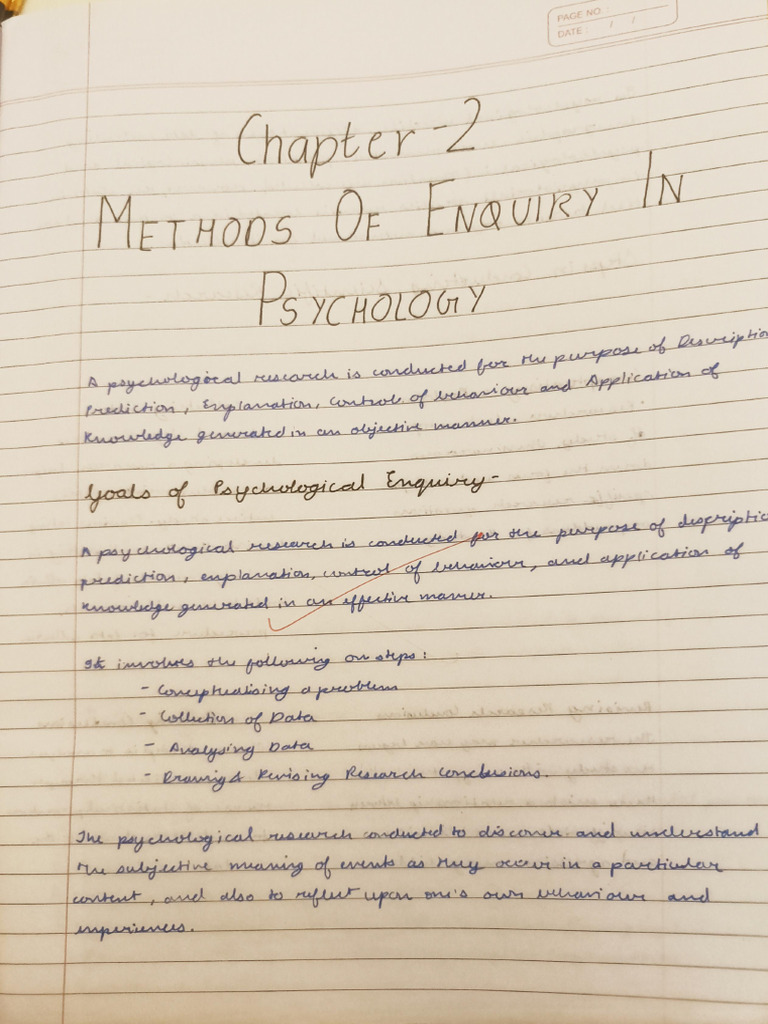 PAGE NO.
DATE: / /
Chapter-2
METHODS OF ENQUIRY IN
PSYCHOLOGY
A psychological research is conducted for the purpose of Descriptio
Prediction, Explanation, control of behaviour and Application of
knowledge generated in an objective manner.
Goals of Psychological Enquiry-
A psychological research is conducted for the purpose of discriptio
prediction, explanation, control of behaviour, and application of
knowledge generated in an effective manner.
It involves the following on steps:
- Conceptualising a problem
- Collection of Data
- Analysing Data
- Drawing & Revising Research Conclusions.
The psychological research conducted to discover and understand
the subjective meaning of events as they occur in a particular
context, and also to reflect upon one's own behaviour and
experiences.